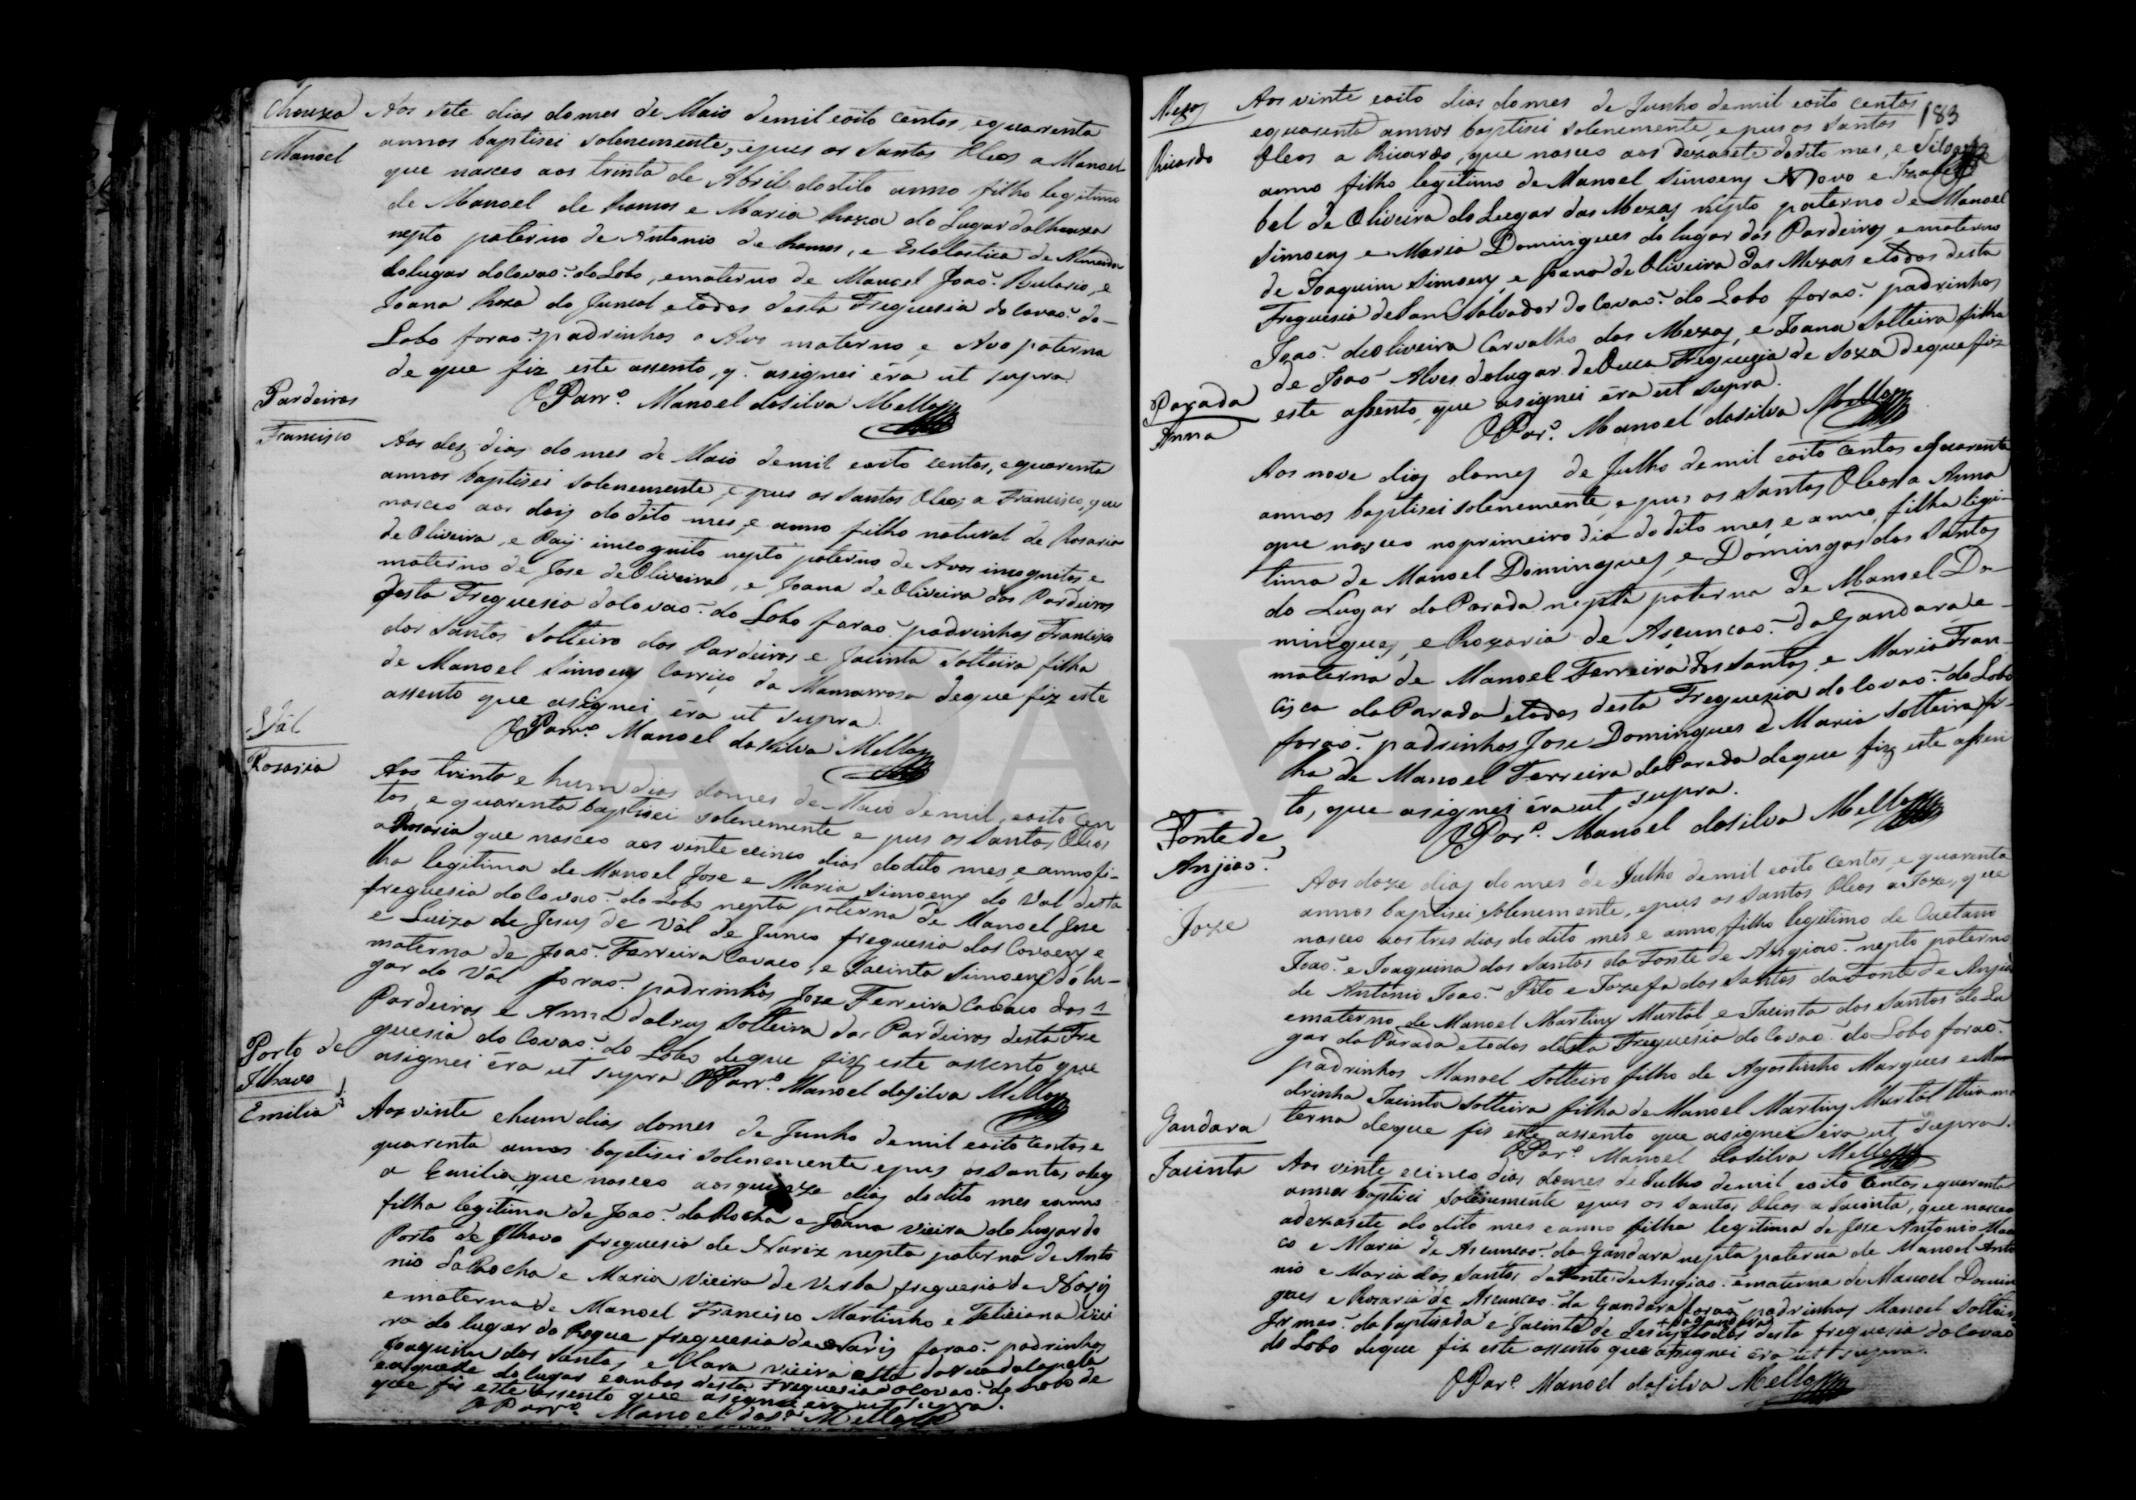 Chouza
Manoel
Aos sete dias do mes de Maio de mil eoito centos, equarenta
annos baptisei solenemente, epus os Santos Oleos a Manoel
que nasceo aos trinta de Abril do dito anno filho legitimo
de Manoel de Ramos e Maria Roza do Lugar da Chouza
nepto paterno de Antonio de Ramos, e Escolastica de Almeida
do lugar do Covaõ do Lobo, ematerno de Manoel Joaõ, e
Joana Roza do Juncal etodos desta Freguesia do Covaõ do
Lobo foraõ padrinhos o Avo materno, e Avo paterna
de que fiz este assento, q. asegnei éra ut supra
O Parr.º Manoel da Silva Mello
Pardeiros
Francisco
Aos dez dias do mes de Maio de mil eoito centos, equarenta
annos baptisei solenemente, e pus os Santos Oleos a Francisco, que
nasceo aos dois do dito mes, e anno filho natural de Rosaria
de Oliveira, e Pay incognito nepto paterno de Avos incognitos, e
materno de Jose de Oliveira, e Joana de Oliveira dos Pardeiros
desta Freguesia do Covaõ do Lobo foraõ padrinhos Francisco
dos Santos Solteiro dos Pardeiros e Jacinta Solteira filha
de Manoel Simoens Carriço da Mamarrosa de que fiz este
assento que asignei éra ut supra.
O Parr.º Manoel da Silva Mello
Vál
Rosaria
Aos trinta e hum dias do mes de Maio de mil, eoito Cen
tos, e quarenta baptisei solenemente e pus os Santos Oleos
a Rosaria que nasceo aos vinte ecinco dias do dito mes, e anno fi-
lha legitima de Manoel Jose e Maria Simoens do Val desta
freguesia do Covaõ do Lobo nepta paterna de Manoel Jose
e Luiza de Jesus de Vál de Junco freguesia dos Covoens e
materna de Joaõ Ferreira Cavaco, e Jacinta Simoens do lu-
gar do Vál foraõ padrinhos Joze Ferreira Cavaco dos
Pardeiros e Anna Solteira dos Pardeiros desta Fre
guesia do Covaõ do Lobo de que fiz este assento que
asignei éra ut supra O Parr.º Manoel da Silva Mello
Porto de
Ilhavo
Emilia
Aos vinte ehum dias do mes de Junho de mil eoito Centos e
quarenta annos baptisei solenemente epus os Santos oleos
a Emilia, que nasceo aos quinze dias do dito mes eanno
filha legitima de Joaõ da Rocha e Joana Vieira do lugar do
Porto de Ilhavo freguesia de Nariz nepta paterna de Anto
nio da Rocha e Maria Vieira de Verba freguesia de Nariz
e materna de Manoel Francisco Martinho e Feliciana Viei
ra do lugar do Roque freguesia de Nariz foraõ padrinhos
Joaquim dos Santos e Clara Vieira esta
do lugar eambos desta Freguesia do Covaõ do Lobo de
que fis este assento que asignei éra ut supra.
O Parr.º Manoel da S.ª Mello
183
Mezas
Ricardo
Aos vinte eoito dias do mes de Junho de mil eoito centos
equarenta annos baptisei solenemente, epus os Santos
Oleos a Ricardo, que nasceo aos dezasete do dito mes, e
anno filho legitimo de Manoel Simoens Novo e Iza
bel de Oliveira do Lugar das Mezas nepto paterno de Manoel
Simoens e Maria Domingues do lugar dos Pardeiros, ematerno
de Joaquim Simoens, e Joana de Oliveira das Mezas etodos desta
Freguesia de Sam Salvador do Covaõ do Lobo foraõ padrinhos
Joaõ de Oliveira Carvalho das Mezas, e Joana Solteira filha
de Joaõ Alves do lugar de Ouca Freguezia de Soza de que fiz
este assento, que asignei éra ut supra.
O Par.º Manoel da Silva Mello
Parada
Anna
Aos nove dias do mes de Julho de mil eoito Centos equarenta
annos baptisei solenemente, e pus os Santos Oleos a Anna
que nasceo no primeiro dia do dito mes, e anno, filha legi-
tima de Manoel Domingues, e Domingas dos Santos
do Lugar da Parada nepta paterna de Manoel Do-
mingues, e Rozaria de Asçuncaõ da Gandara, e
materna de Manoel Ferreira dos Santos, e Maria Fran-
cisca da Parada etodos desta Freguezia do Covaõ do Lobo
foraõ padrinhos Jose Domingues e Maria Solteira fi-
lha de Manoel Ferreira da Parada de que fiz este assen
to, que asignei éra ut supra.
O Par.º Manoel da Silva Mello
Fonte de
Anjiaõ
Joze
Aos doze dias do mes de Julho de mil eoito Centos, e quarenta
annos baptisei solenemente, epus os Santos Oleos a Joze, que
nasceo aos tres dias do dito mes e anno filho legitimo de Caetano
Joaõ e Joaquina dos Santos da Fonte de Angiaõ nepto paterno
de Antonio Joaõ Pito e Jozefa dos Santos da Fonte de Anjiaõ
ematerno de Manoel Martins Murtal e Jacinta dos Santos do Lu
gar da Parada etodos desta Freguesia do Covaõ do Lobo foraõ
padrinhos Manoel Solteiro filho de Agostinho Marques e Ma
drinha Jacinta Solteira filha de Manoel Martins Murtal thia ma
terna de que fis este assento que asignei éra ut supra.
O Par.º Manoel da Silva Mello
Gandara
Jacinta
Aos vinte ecinco dias do mes de Julho de mil eoito Centos equarenta
annos baptisei solenemente epus os Santos Oleos a Jacinta, que nasceo
a dezasete do dito mes eanno filha legitima de Jose Antonio
e Maria de Ascuncaõ da Gandara nepta paterna de Manoel Anto
nio e Maria dos Santos da Fonte de Angiaõ ematerna de Manoel Domin
gues e Rosaria de Ascuncaõ da Gandara foraõ padrinhos Manoel Solteiro
Irmaõ da baptisada e Jacinta de Jesus todos desta freguesia do Covaõ
do Lobo de que fiz este assento que asignei éra ut supra.
O Par.º Manoel da Silva Mello
ADAVR